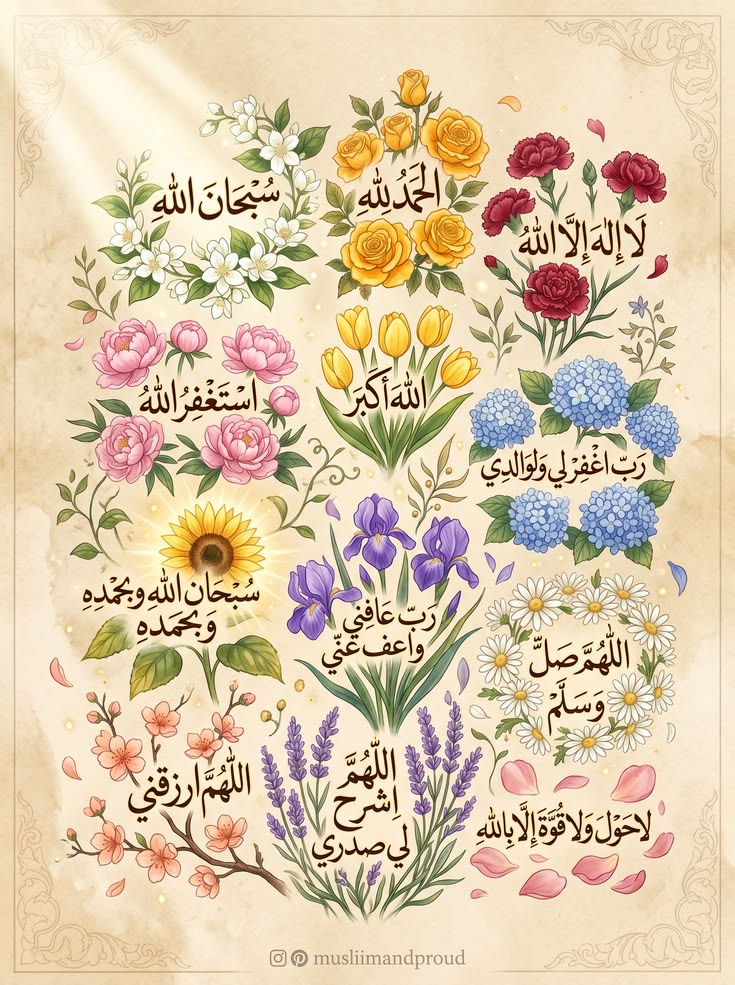 سُبْحَانَ اللهِ
الحَمْدُ لِلهِ
لَا إِلٰهَ إِلَّا اللهُ
اسْتَغْفِرُ اللهُ
اللهُ أَكْبَر
رَبّ اغْفِرْ لي وَلِوَالِدِي
سُبْحَان اللهِ وَبِحَمْدِهِ
وَبِحَمَدِه
رَبّ عَافِنِي
وَاعف عَنّي
اللّٰهُمَّ صَلّ
وَسَلَّمْ
اللّٰهُمَّ ارزقني
اللّٰهُمَّ
اِشرح
لي صدري
لا حَوْلَ وَلا قُوَّةَ إِلَّا بِاللهِ
musliimandproud